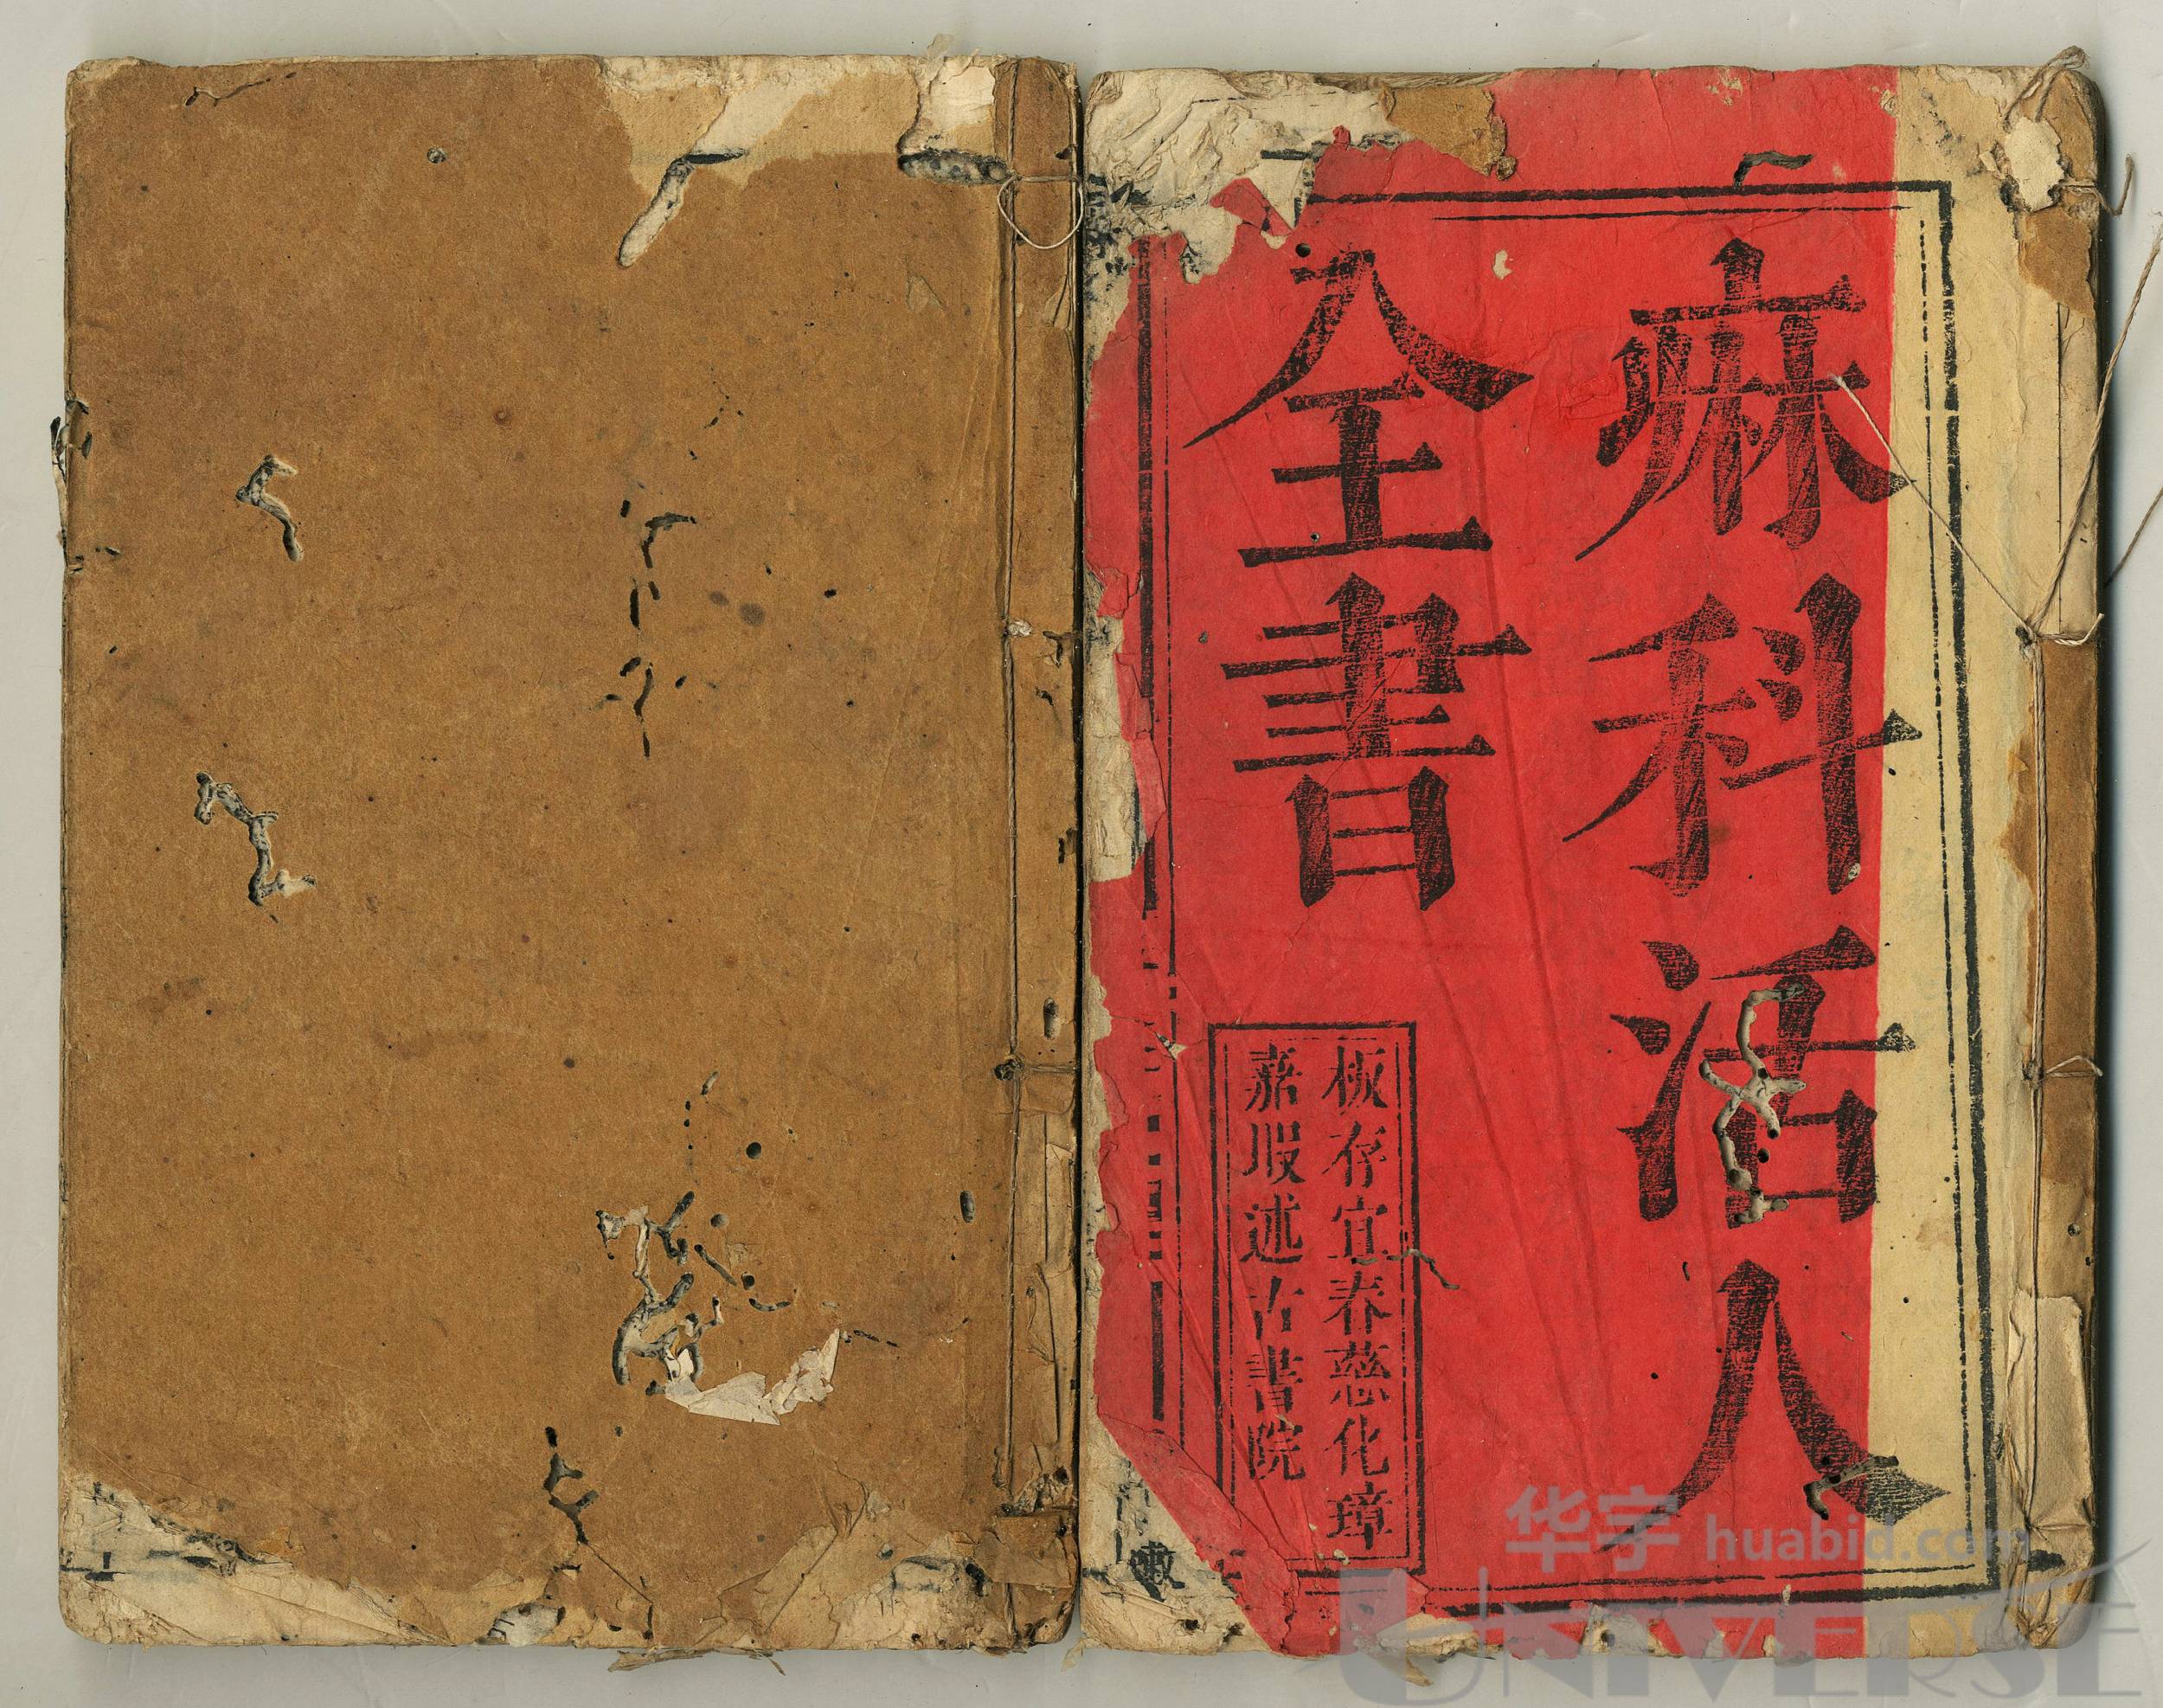 痳科活人
全書
板存宜春慈化璋
嘉叚述古書院
华宇 huabid.com
UNIVERSE